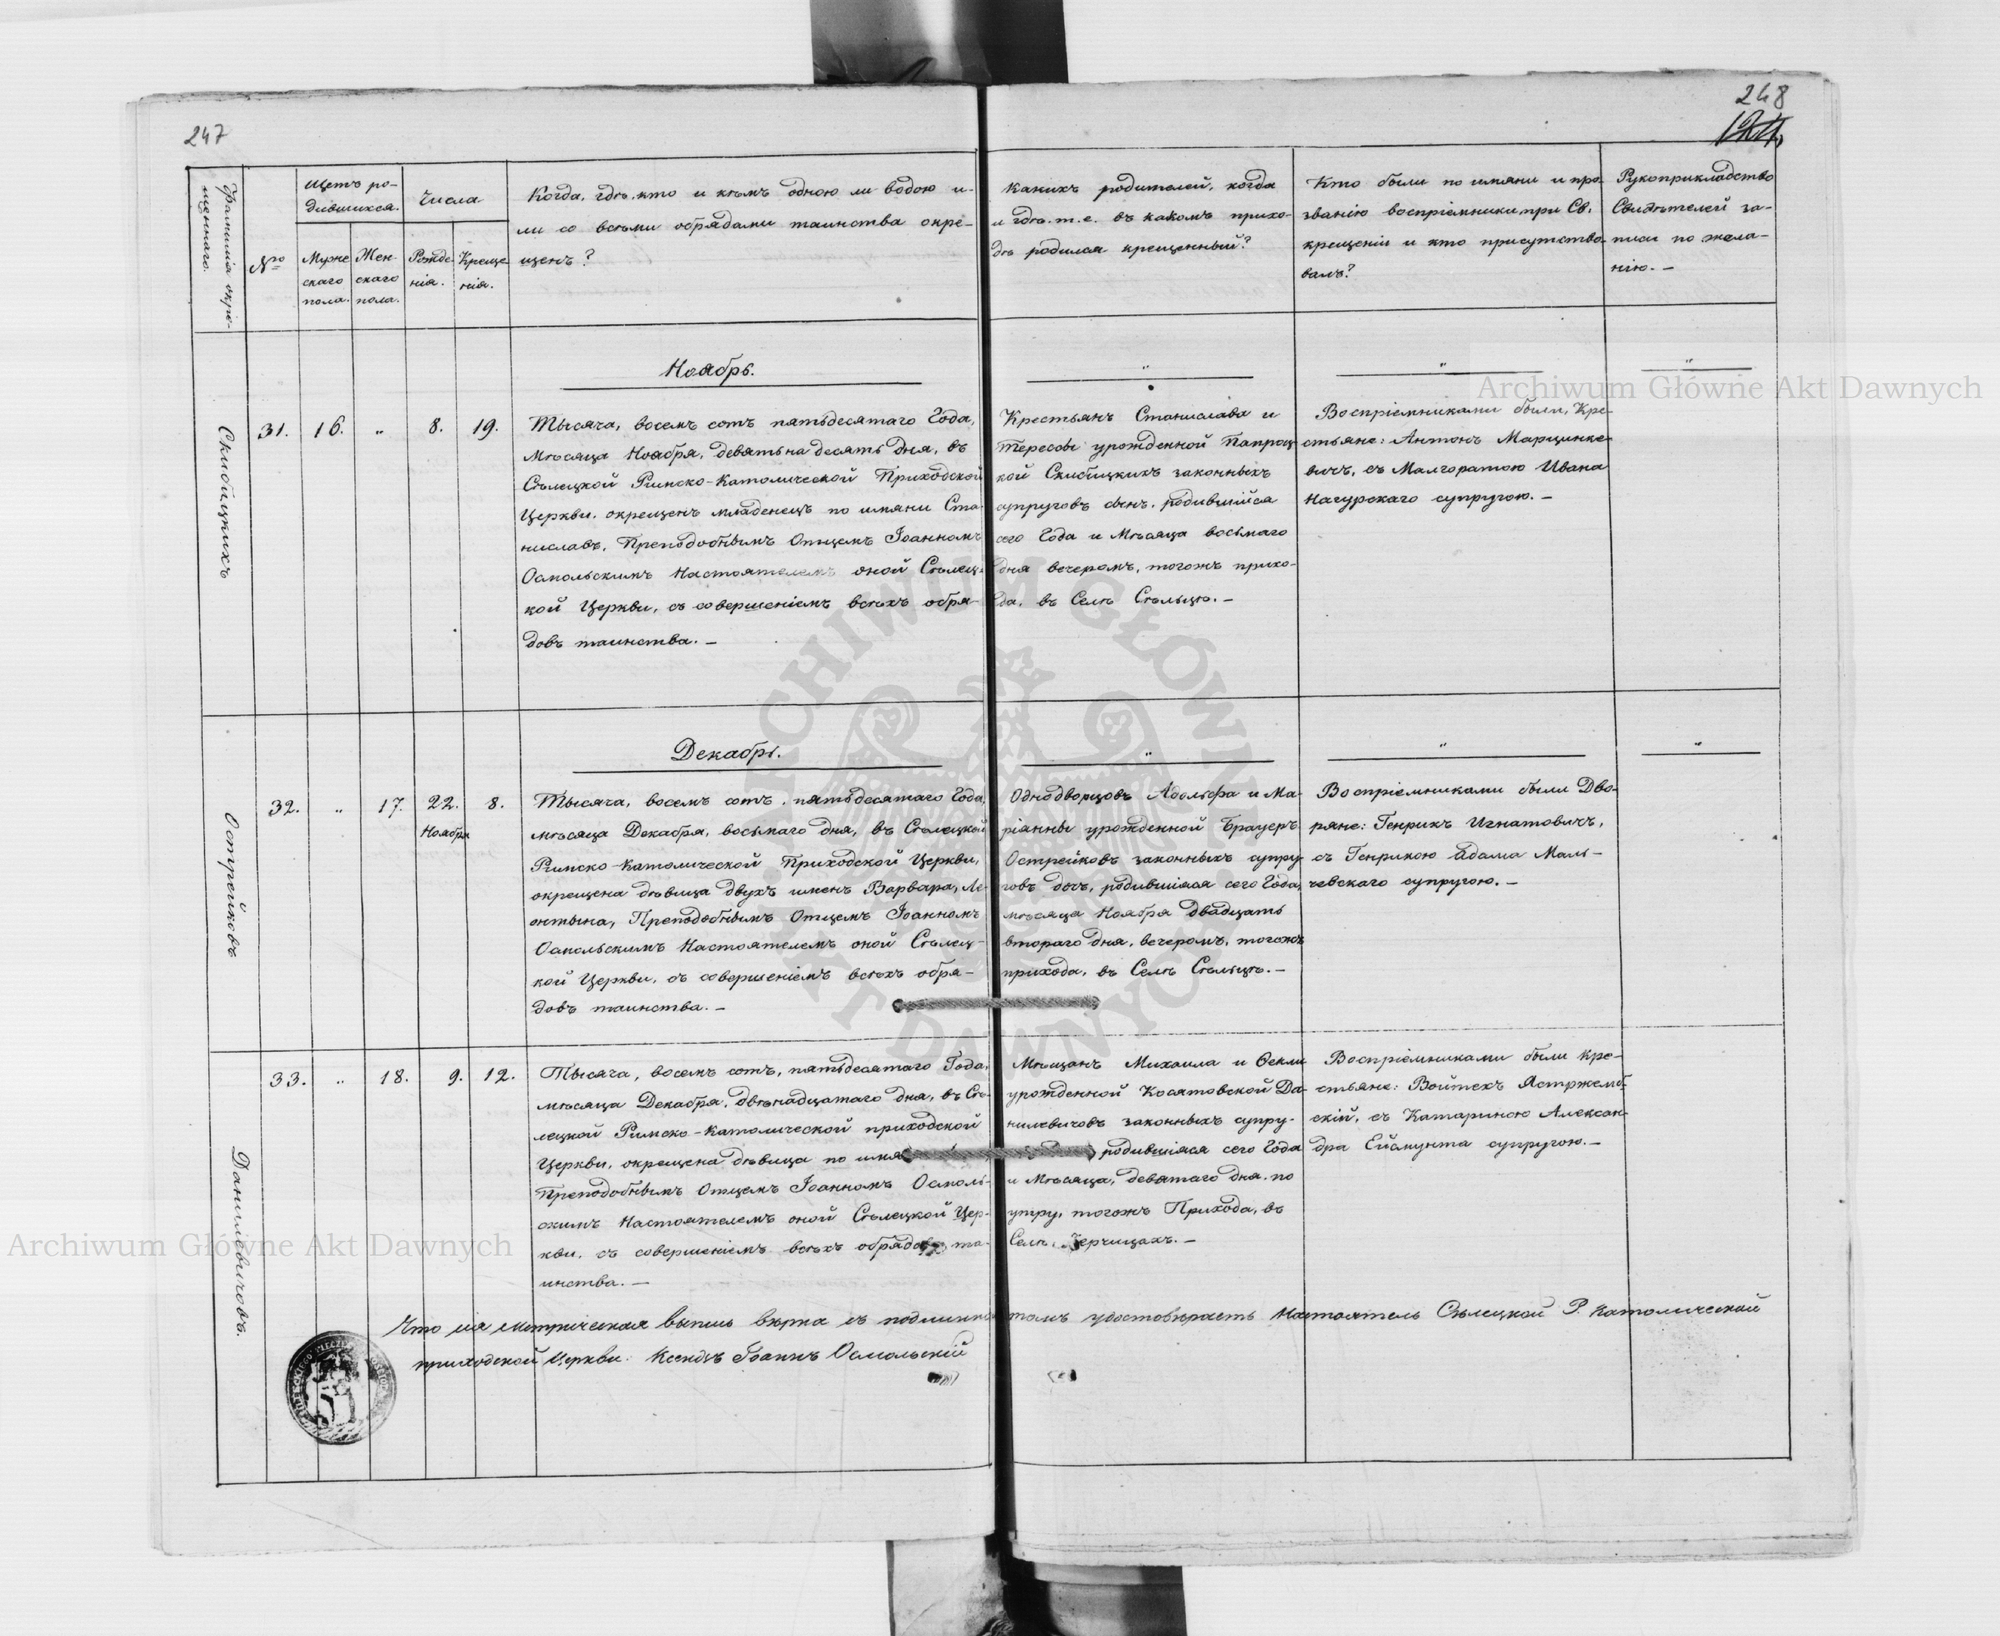 247
248
124
Фамилія окре-
щеннаго.
№
Щетъ ро-
дившихся.
Мужс
скаго
пола.
Жен-
скаго
пола.
Числа
Рожде-
нія.
Креще
нія.
Когда, гдѣ, кто и кѣмъ одною ли водою и-
ли со всѣми обрядами таинства окре-
щенъ?
Какихъ родителей, когда
и гдѣ. т. е. въ какомъ прихо-
дѣ родился крещенный?
Кто были по имяни и про-
званію воспріемники при Св.
крещеніи и кто присутство-
валъ?
Рукоприкладство
Свидѣтелей за-
писи по жела-
нію. —
Ноябрь.
Скибицкихъ
31.
16.
"
8.
19.
Тысяча, восемъ сотъ пятьдесятаго Года,
Мѣсяца Ноября, девятьнадесять дня, въ
Сѣлецкой Римско-Католической Приходской
Церкви, окрещенъ младенецъ по имяни Ста-
ниславъ, Преподобнымъ Отцемъ Іоанномъ
Осмольскимъ Настоятелемъ оной Сѣлец-
кой Церкви, съ совершеніемъ всѣхъ обря-
довъ таинства. —
Крестьянъ Станислава и
Тересы урожденной Папроц-
кой Скибицкихъ законныхъ
супруговъ сынъ, родившійся
сего Года и Мѣсяца восьмаго
дня вечеромъ, тогожъ прихо-
да, въ Селѣ Сѣльцѣ. —
Воспріемниками были, Кре-
стьяне: Антонъ Марцинке-
вичъ, съ Малгоратою Ивана
Нагурскаго супругою. —
Декабрь.
Острейковъ
32.
"
17.
22.
Ноября
8.
Тысяча, восемъ сотъ, пятьдесятаго Года,
мѣсяца Декабря, восьмаго дня, въ Сѣлецкой
Римско-Католической Приходской Церкви,
окрещена дѣвица двухъ именъ Варвара, Ле-
онтына, Преподобнымъ Отцемъ Іоанномъ
Осмольскимъ Настоятелемъ оной Сѣлец-
кой Церкви, съ совершеніемъ всѣхъ обря-
довъ таинства. —
Однодворцовъ Адольфа и Ма-
ріанны урожденной Брауеръ
Острейковъ законныхъ супру-
говъ дочь, родившаяся сего Года,
мѣсяца Ноября двадцать
втораго дня, вечеромъ, тогожъ
прихода, въ Селѣ Сѣльцѣ. —
Воспріемниками были Дво-
ряне: Генрикъ Игнатовичъ,
съ Генрикою Адама Маль-
чевскаго супругою. —
Данилевичовъ.
33.
"
18.
9.
12.
Тысяча, восемъ сотъ, пятьдесятаго Года,
мѣсяца Декабря, двѣнадцатаго дня, въ Сѣ-
лецкой Римско-Католической приходской
Церкви, окрещена дѣвица по имя
Преподобнымъ Отцемъ Іоанномъ Осмоль-
скимъ Настоятелемъ оной Сѣлецкой Цер-
кви, съ совершеніемъ всѣхъ обрядовъ та-
инства. —
Мѣщанъ Михаила и Ѳеклы
урожденной Косятовской Да-
нилевичовъ законныхъ супру-
родившаяся сего Года
и Мѣсяца, девятаго дня. по
утру, тогожъ Прихода, въ
Селѣ, Черчицахъ. —
Воспріемниками были Кре-
стьяне: Войтехъ Ястржемб-
скій, съ Катариною Алексан-
дра Ейсмунта супругою. —
Что сія метрическая выпись вѣрна съ подлинно томъ удостовѣряетъ Настоятель Сѣлецкой Р. Католической
приходской Церкви. Ксендзъ Іоаннъ Осмольскій
Archiwum Główne Akt Dawnych
Archiwum Główne Akt Dawnych
ARCHIWUM GŁÓWNE AKT DAWNYCH